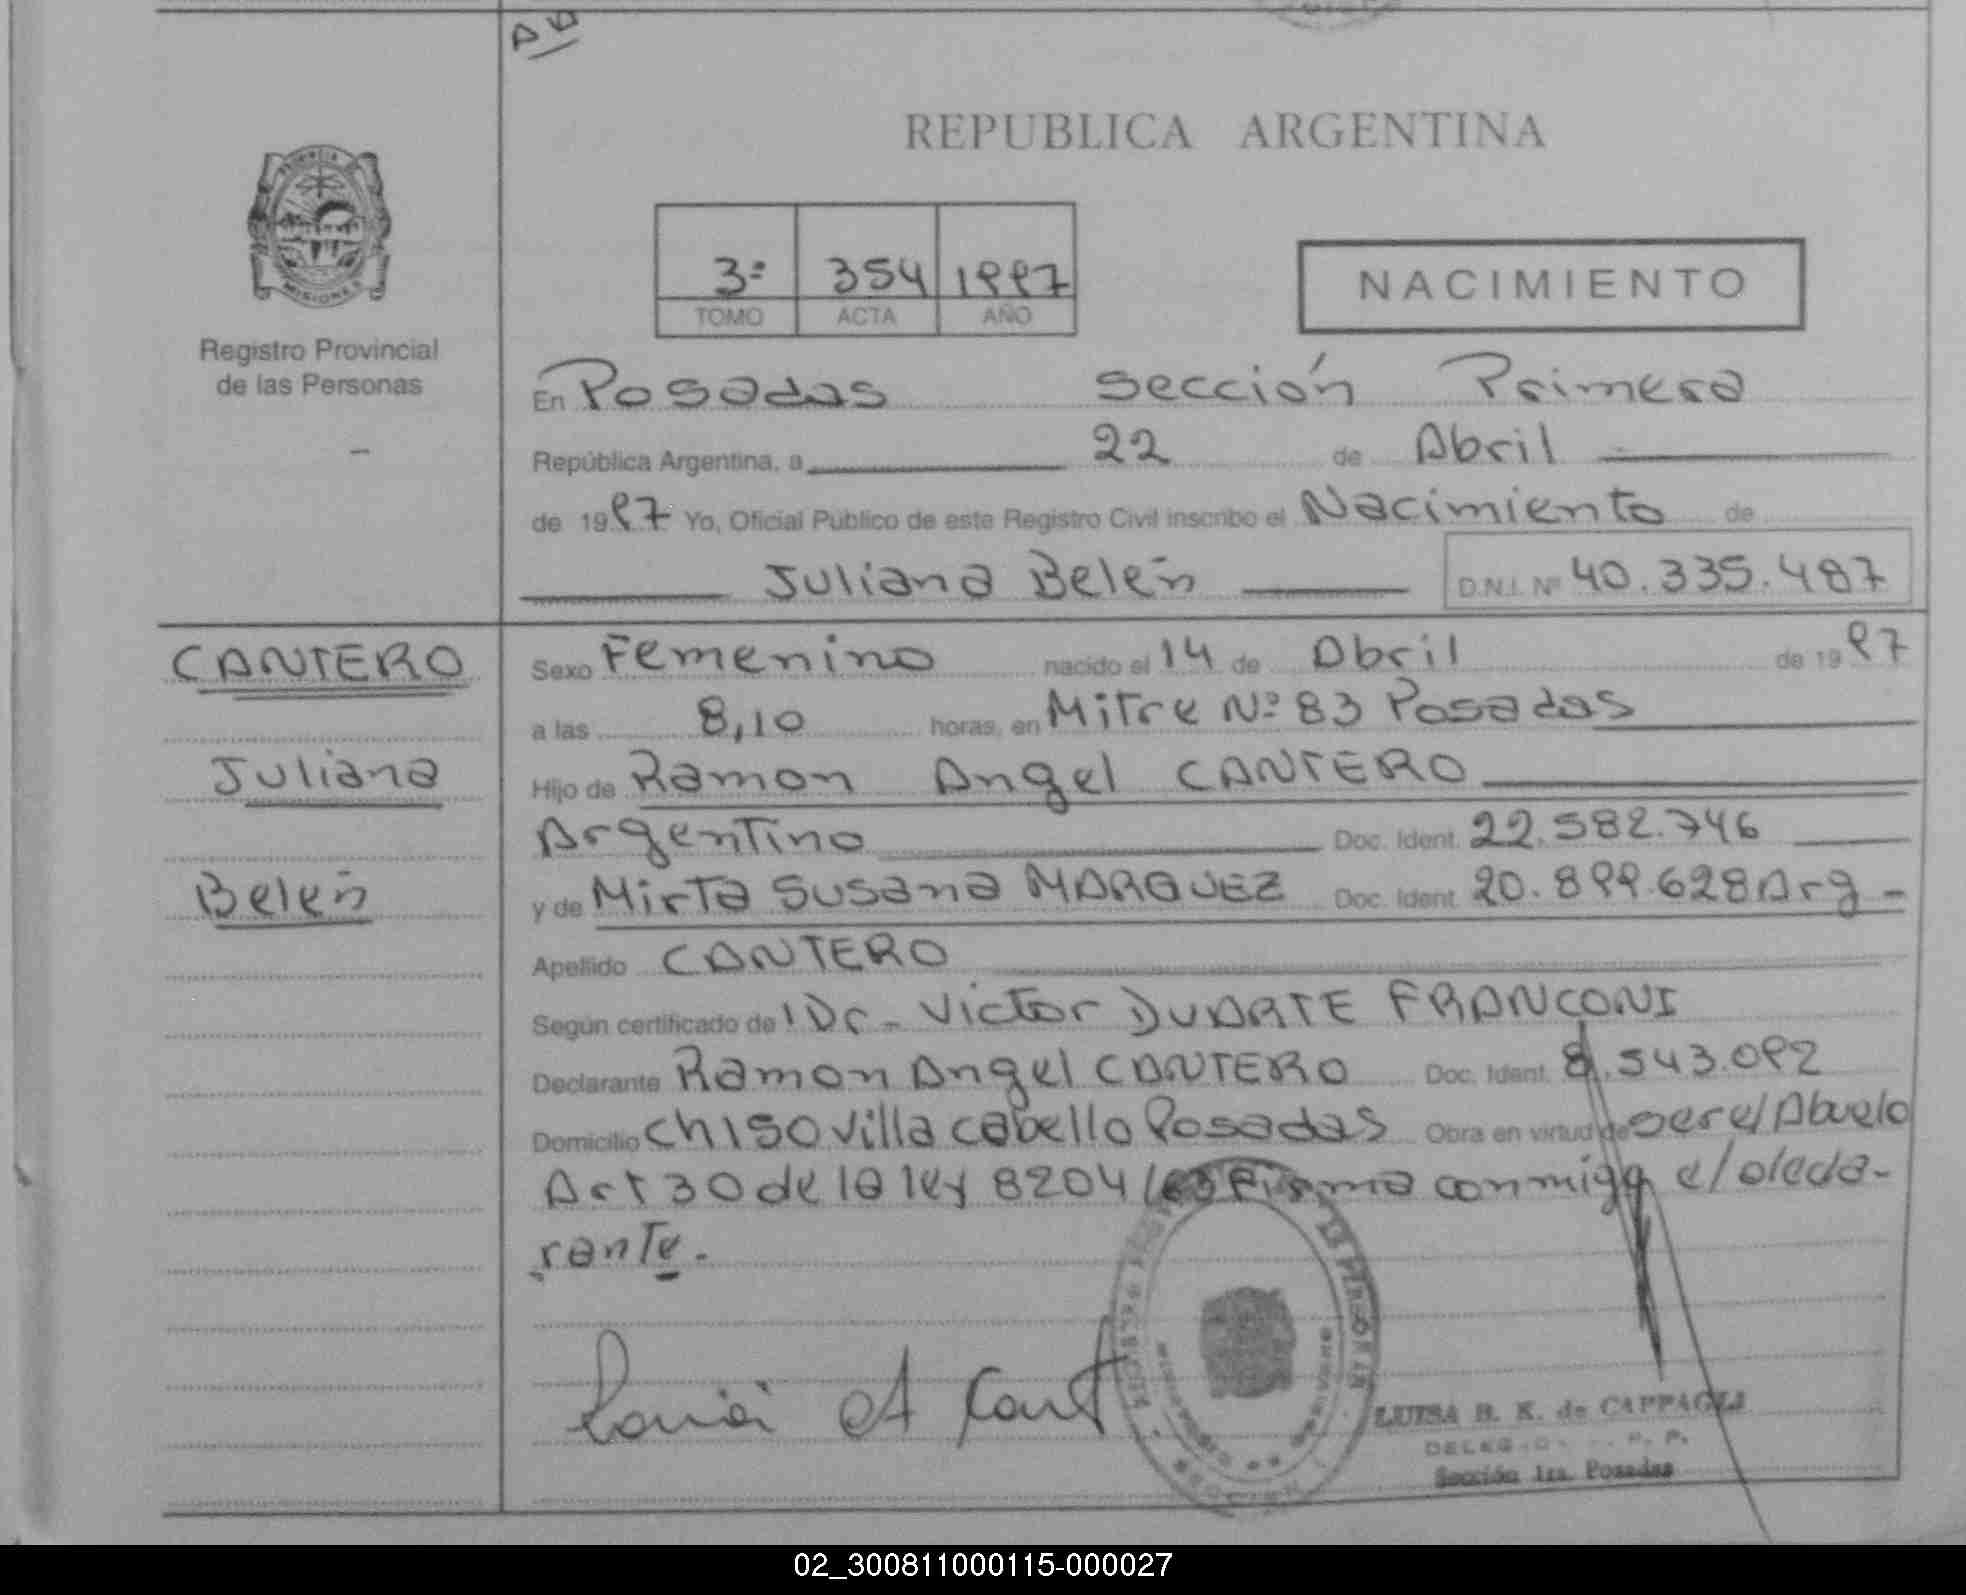 AD
REPUBLICA ARGENTINA
3º 354 1997
TOMO ACTA AÑO
NACIMIENTO
MISIONES
Registro Provincial
de las Personas
En Posadas sección Primera
República Argentina, a 22 de Abril
de 1997 Yo, Oficial Público de este Registro Civil inscribo el Nacimiento de
Juliana Belén D.N.I. Nº 40.335.487
CANTERO
Juliana
Belén
Sexo Femenino nacido el 14 de Abril de 1997
a las 8,10 horas, en Mitre Nº 83 Posadas
Hijo de Ramon Angel CANTERO
Argentino Doc. Ident. 22.582.746
y de Mirta Susana MARQUEZ Doc. Ident. 20.899.628 Arg -
Apellido CANTERO
Según certificado de Dr. Victor DUARTE FRANCONI
Declarante Ramon Angel CANTERO Doc. Ident. 8.543.092
Domicilio Ch 150 Villa Cabello Posadas Obra en virtud de ser el Abuelo
Art 30 de la ley 8204 Firma conmigo el decla-
rante.
LUISA B. K. de CAPPAGLI
Sección 1ra. Posadas
02_300811000115-000027